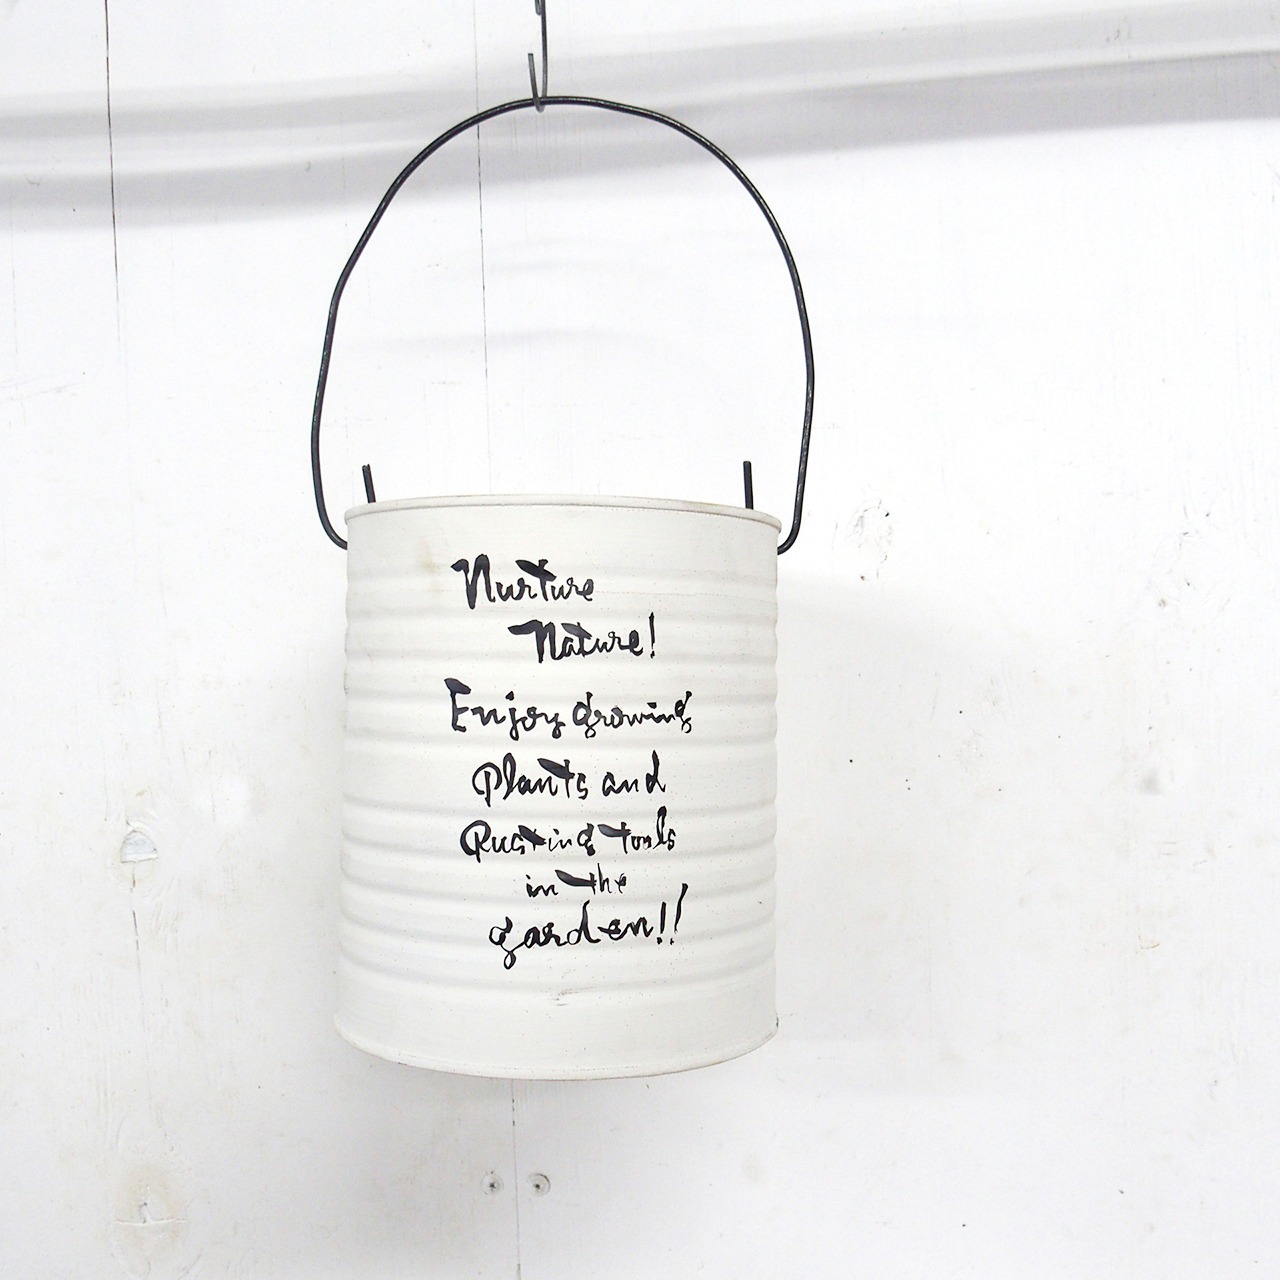 Nurture
Nature!
Enjoy growing
Plants and
Rusting tools
in the
garden!!